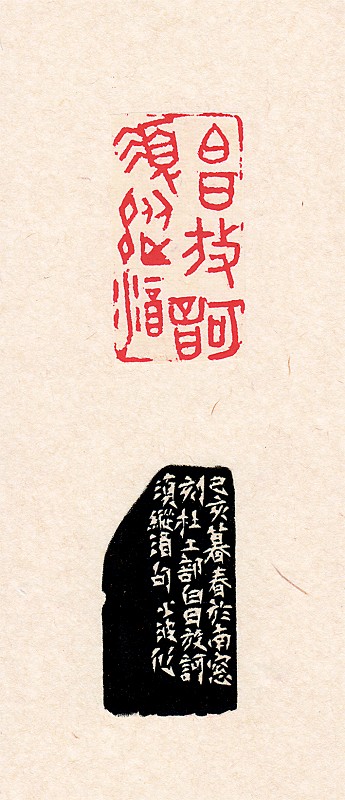 白日放訶
須縱酒
己亥暮春於南窓
刻杜工部白日放訶
須縱酒句小波